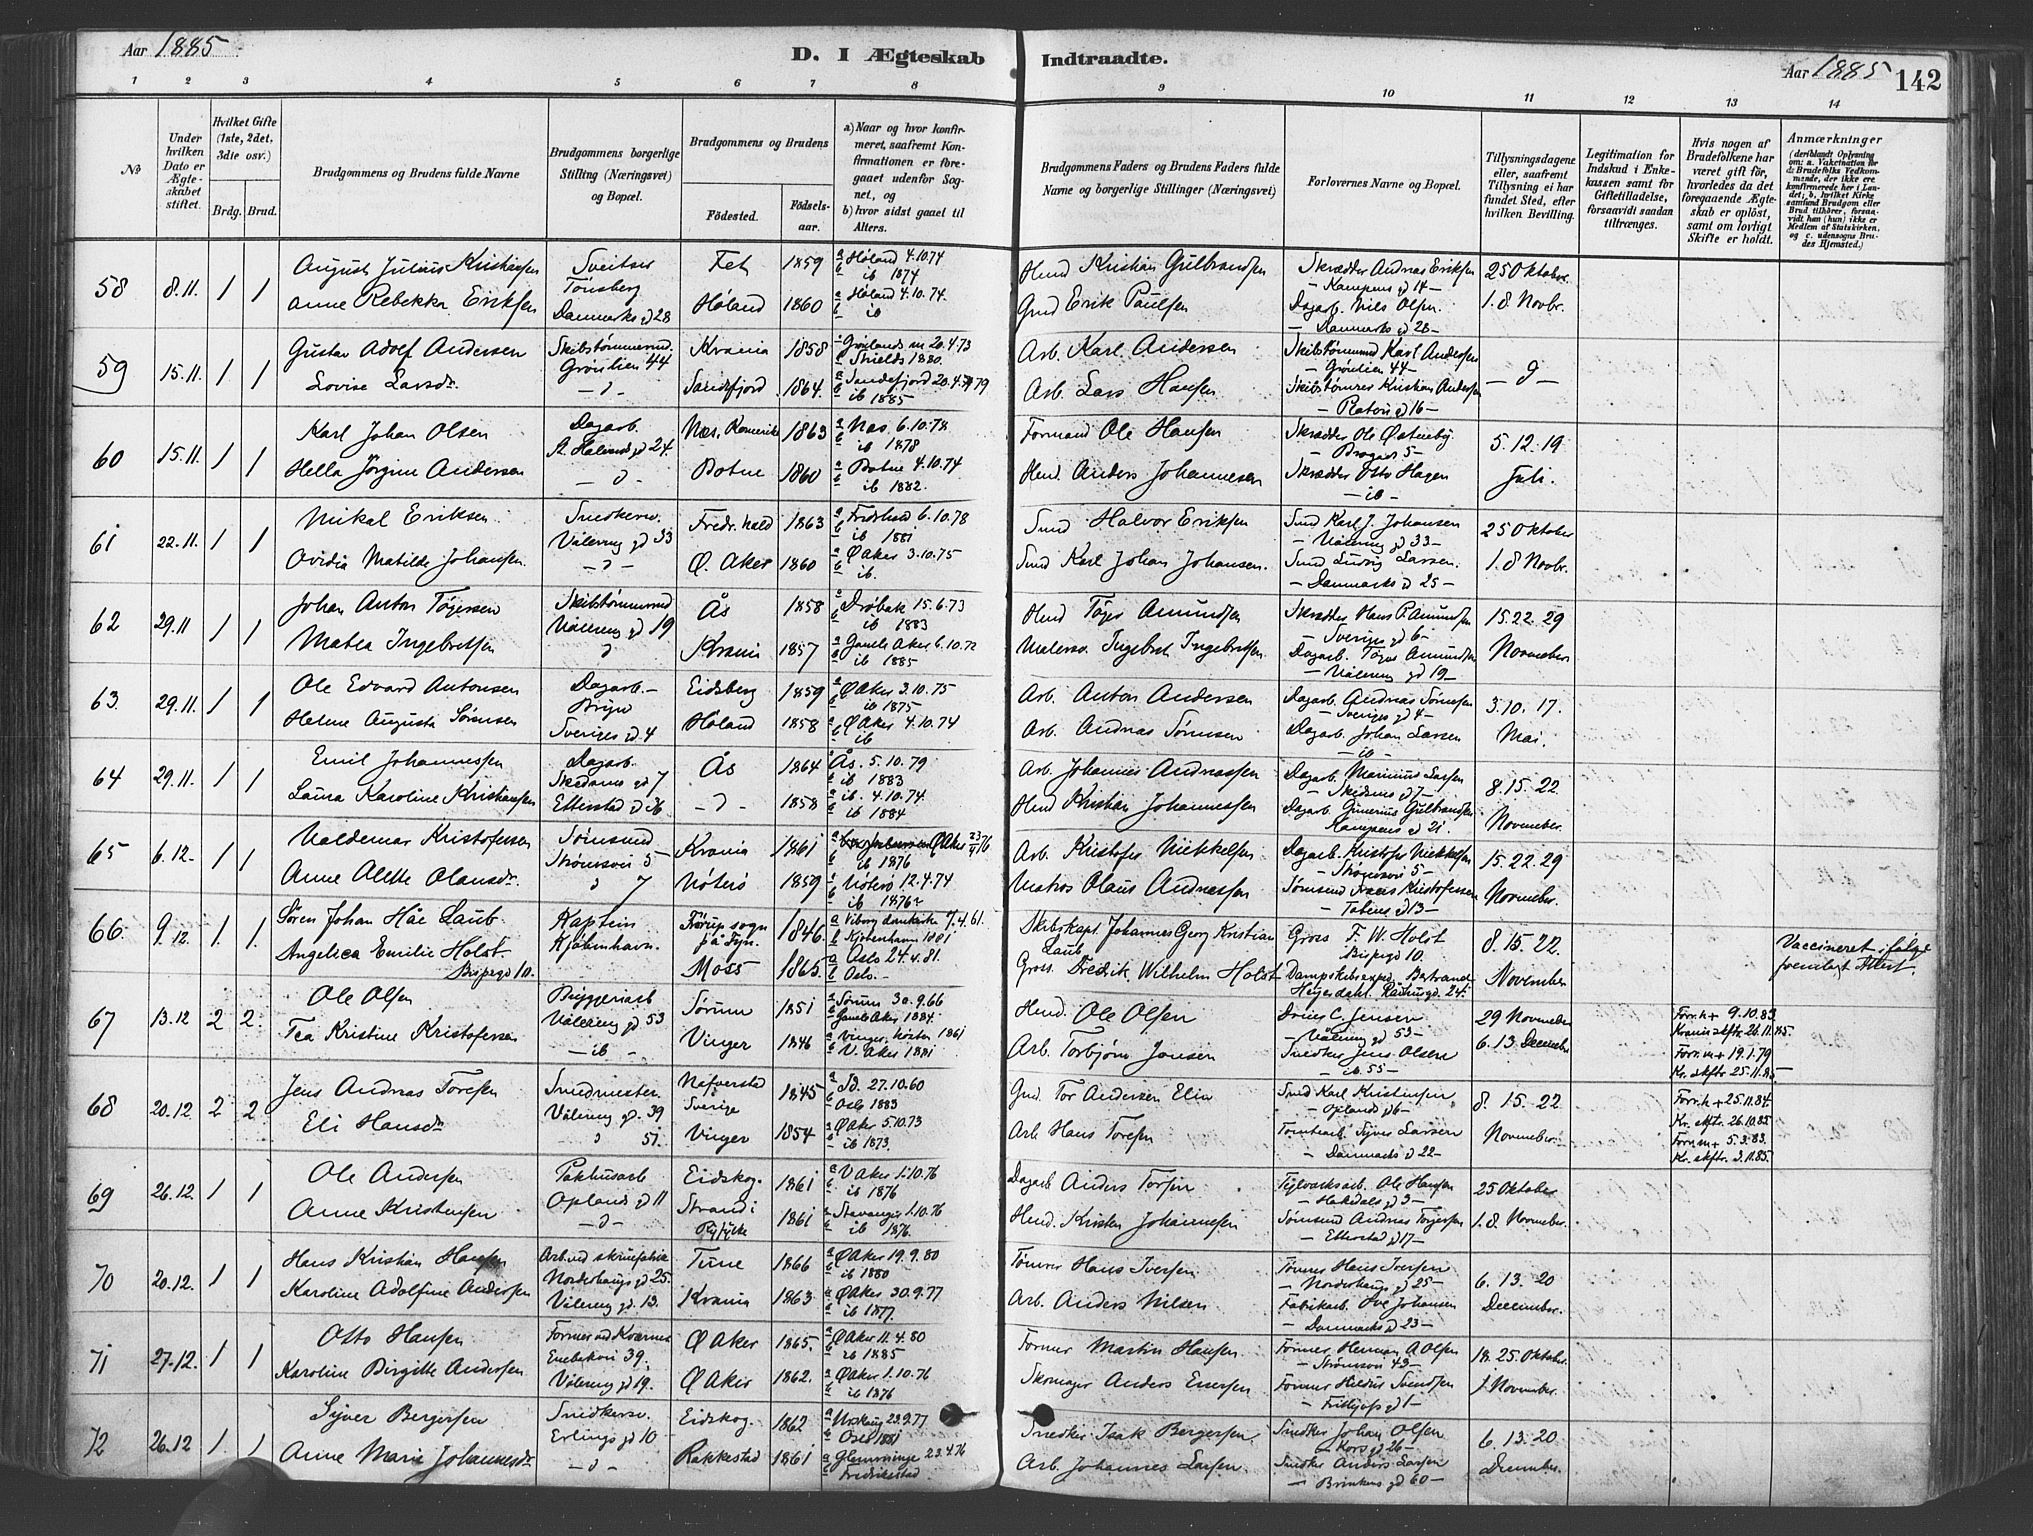 Aar 1885
D. I Ægteskab Indtraadte.
Aar 1885 142
1 2 3 4 5 6 7 8 9 10 11 12 13 14
No
Under hvilken Dato er Ægteskabet stiftet.
Hvilket Gifte (1ste, 2det, 3die osv.)
Brdg. Brud.
Brudgommens og Brudens fulde Navne
Brudgommens borgerlige Stilling (Næringsvei) og Bopæl.
Brudgommens og Brudens
Fødested. Fødselsaar.
a) Naar og hvor konfirmeret, saafremt Konfirmationen er foregaaet udenfor Sognet, og
b) hvor sidst gaaet til Alters.
Brudgommens Faders og Brudens Faders fulde Navne og borgerlige Stillinger (Næringsvei)
Forlovernes Navne og Bopæl.
Tillysningsdagene eller, saafremt Tillysning ei har fundet Sted, efter hvilken Bevilling.
Legitimation for Indskud i Enkekassen samt for Giftetilladelse, forsaavidt saadan tiltrænges.
Hvis nogen af Brudefolkene har været gift før, hvorledes da det foregaaende Ægteskab er opløst, samt om lovligt Skifte er holdt.
Anmærkninger
(deriblandt Oplysning om: a. Vakcination for de Brudefolks Vedkommende, der ikke ere konfirmerede her i Landet; b. hvilket Kirkesamfund Brudgom eller Brud tilhører, forsaavidt han (hun) ikke er Medlem af Statskirken, og c. udensogns Brudes Hjemsted.)
58 8.11. 1 1 August Julius Kristiansen Sveitser Fet 1859 a Høland 4.10.74 Hmd Kristian Gulbrandsen Skrædder Andreas Eriksen 25 Oktober
Tonsberg b ib 1874 – Kampens gd 14 –
Anne Rebekka Eriksen Danmarks gd 28 Høland 1860 a Høland 4.10.74. Gmd Erik Paulsen Dagarb. Nils Olsen 1. 8 Novbr.
b ib – Danmarks gd 28 –
59 15.11. 1 1 Gustav Adolf Andersen Skibstømmermd. Krania 1858 Grønlands m 20.4.73 Arb. Karl Andersen Skibstømmd Karl Andersen – d –
Grønlien 44 b Shields 1880. – Grønlien 44 –
Lovise Larsdr – d – Sandefjord 1864. a Sandefjord 20.4.79 Arb. Lars Hansen Skibstømres Kristian Andersen
b ib 1885 – Platous gd 16 –
60 15.11. 1 1 Karl Johan Olsen Dagarb. Næs, Romerike 1863 a Næs 6.10.78 Formand Ole Hansen Skrædder Ole Østenby 5. 12. 19
St. Halvards gd 24. b ib 1878 5 –
Hella Jørgine Andersen – d – Botne 1860 a Botne 4.10.74 Hmd. Anders Johannesen Skrædder Otto Hagen Juli.
b ib 1882. – ib –
61 22.11. 1 1 Mikal Eriksen Snedkersv. Fredr.hald 1863 a Fredrhald 6.10.78 Smd Halvor Eriksen Smd Karl J. Johansen 25 Oktober
Våleren gd 33 b ib 1881 – Våleren gd 33 –
Ovidia Matilde Johansen. – d – Ø. Aker 1860 a Ø Aker 3.10.75 Smd Karl Johan Johansen. Smd Ludvig Larsen. 1. 8 Novbr.
b ib. – Danmarks gd 25 –
62 29.11 1 1 Johan Anton Tøgersen Skibstømmermd Ås 1858 a Drøbak 15.6.73 Hmd Tøger Amundsen Skrædder Hans P. Amundsen 15. 22. 29
Våleren gd 19 b ib 1883 – Sveriges gd 6 –
Matea Ingebretsen d Krania 1857 a Gamle Aker 6.10.72 Malersv. Ingebret Ingebretsen Dagarb. Tøger Amundsen November
b ib 1885 – Våleren gd 19 –
63. 29.11. 1 1 Ole Edvard Antonsen Dagarb. – Eidsberg 1859 a Ø Aker 3.10.75 Arb. Anton Andersen Dagarb Andreas Sørensen 3. 10. 17.
Bryn b ib 1875 – Sveriges gd 4 –
Helene Augusta Sørensen Sveriges gd. 4 Høland 1858 a Ø Aker 4.10.74 Arb. Andreas Sørensen Dagarb. Johan Larsen Mai.
b ib – ib –
64 29.11. 1 1 Emil Johannessen Dagarb. Ås 1864 a Ås. 5.10.79 Arb. Johannes Andreassen Dagarb Marinius Larsen 8. 15. 22.
Skedsmo gd 7 b ib 1883 – Skedsmo gd 7 –
Laura Karoline Kristiansen Etterstad gd 26 – d – 1858 a ib. 4.10.74. Hmd Kristian Johannessen Dagarb. Gunerius Gulbrandsen November.
b ib 1884 Kampens gd 21.
65 6.12. 1 1 Valdemar Kristofersen Tømmermd Krania 1861 Ø Aker 23/4 76 Arb. Kristofer Mikkelsen Dagarb. Kristofer Mikkelsen 15. 22. 29
Strømsvei 5 – b ib 1876 – Strømsvei 5 –
Anne Alette Olausdr. d 7 Nøterø 1859 a Nøterø 12.4.74 Matros Olaus Andreassen Tømmermd Frants Kristofersen November.
b ib 1876 – Tøiens gd 13 –
66. 9.12. 1. 1. Søren Johan Håe Laub Kaptein Rørup sogn på Fyn. 1846. a Viborg domkirke 7.4.61. Skibskapt. Johannes Georg Kristian Laub Gross F. W. Holst 8. 15. 22. Vaccineret ifølge fremlagt Attest.
Kjøbenhavn. b Kjøbenhavn 1881 Bispegd 10.
Angelica Emilie Holst Bispegd 10. Moss 1865. a Oslo 24.4.81. Gross. Fredrik Wilhelm Holst Dampskibsexped. Bertrand Heyerdahl. Rådhusgd. 24. November
b Oslo. –
67 13.12 2 2. Ole Olsen Bryggeriarb Sørum 1851 a Sørum 30.9.66 Hmd. Ole Olsen Dries C. Jensen 29 November Forr. h + 9.10.83
Våleren gd 53 b Gamle Aker 1884. – Våleren gd 53 – Krania skftr 26.11.85
Tea Kristine Kristofersen – ib – Vinger 1846 a Vinger, høsten 1861 Arb. Torbjørn Jonsen Snedker Jens Olsen 6. 13 December Forr. m + 19.1.79
b V. Aker 1881 – ib. 55 – Kr. skftr 25.11.85.
68 20.12. 2 2 Jens Andreas Toresen Snedmester. Nafverstad 1845 a Id. 27.10.60 Gmd. Tor Andersen Elia Smd Karl Kristensen 8. 15. 22 Forr. h + 25.11.84.
Våleren gd. 39 Sverige b Oslo 1883 – Oplands gd 6 – Kr. skftr. 26.10.85.
Eli Hansdr d 51. Vinger 1854 a Ø Aker 5.10.73 Arb. Hans Toresen Tomtearb. Syver Larsen November. Forr. m + 5.3.83.
b ib 1873. – Danmarks gd 22 – Kr. skftr. 3.11.85.
69 26.12. 1 1 Ole Andersen Pakhusarb Eidskog. 1861 a V Aker 1.10.76 Dagarb Anders Torsen Teglværksarb. Ole Hansen 25 Oktober
Oplands gd 11 b ib 1876 – Hakedals gd 3 –
Anne Kristensen – d – Strand i Ryfylke 1861 a Stavanger 1.10.76 Hmd. Kristen Johannesen Tømmermd Andreas Torgersen 1. 8. November.
b ib 1876. – Etterstad gd 17 –
70 20.12. 1 1 Hans Kristian Hansen Arb. ved skruefabrik Tune 1866 a Ø Aker 19.9.80 Tømrer Hans Iversen Tømrer Hans Iversen 6. 13. 20
Norderhaugs gd 25. b ib 1880 – Norderhaugs gd 25 –
Karoline Adolfine Andersen Våleren gd. 13. Krania 1863 a Ø Aker. 30.9.77 Arb. Anders Nilsen Fabrikarb. Ove Johansen December.
b ib 1877. – Danmarks gd 23 –
71 27.12. 1 1 Otto Hansen Former ved Kværner Ø Aker 1865. a Ø Aker 11.4.80 Former Martin Hansen Former Herman A Olsen 18. 25. Oktober.
Enebakvei 39. b ib 1885 – Strømsvei 43 –
Karoline Birgitte Andersen Våleren gd 19. Ø Aker 1862. a Ø Aker 1.10.76 Skomager Anders Enersen Former Hildus Svendsen 1 November.
b ib 1876 – Fritjofs gd 1 –
72 26.12 1. 1 Syver Bergersen Snedkersv. Eidskog. 1862 a Urskoug 23.9.77 Snedker Isak Bergersen. Snedker Johan Olsen 6. 13. 20
Erlings gd 10 – b Oslo 1881 – Kors gd 26 –
Anne Marie Johannesdr – d – Rakkestad 1861 a Glemminge 23.4.76 Arb. Johannes Larsen Snedker Anders Larsen December.
b Fredrikstad – Brinkens gd 60 –